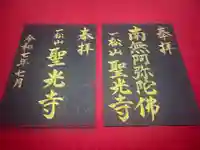 奉拝
一松山
聖光寺
令和七年七月
奉拝
南無阿弥陀佛
一松山 聖光寺